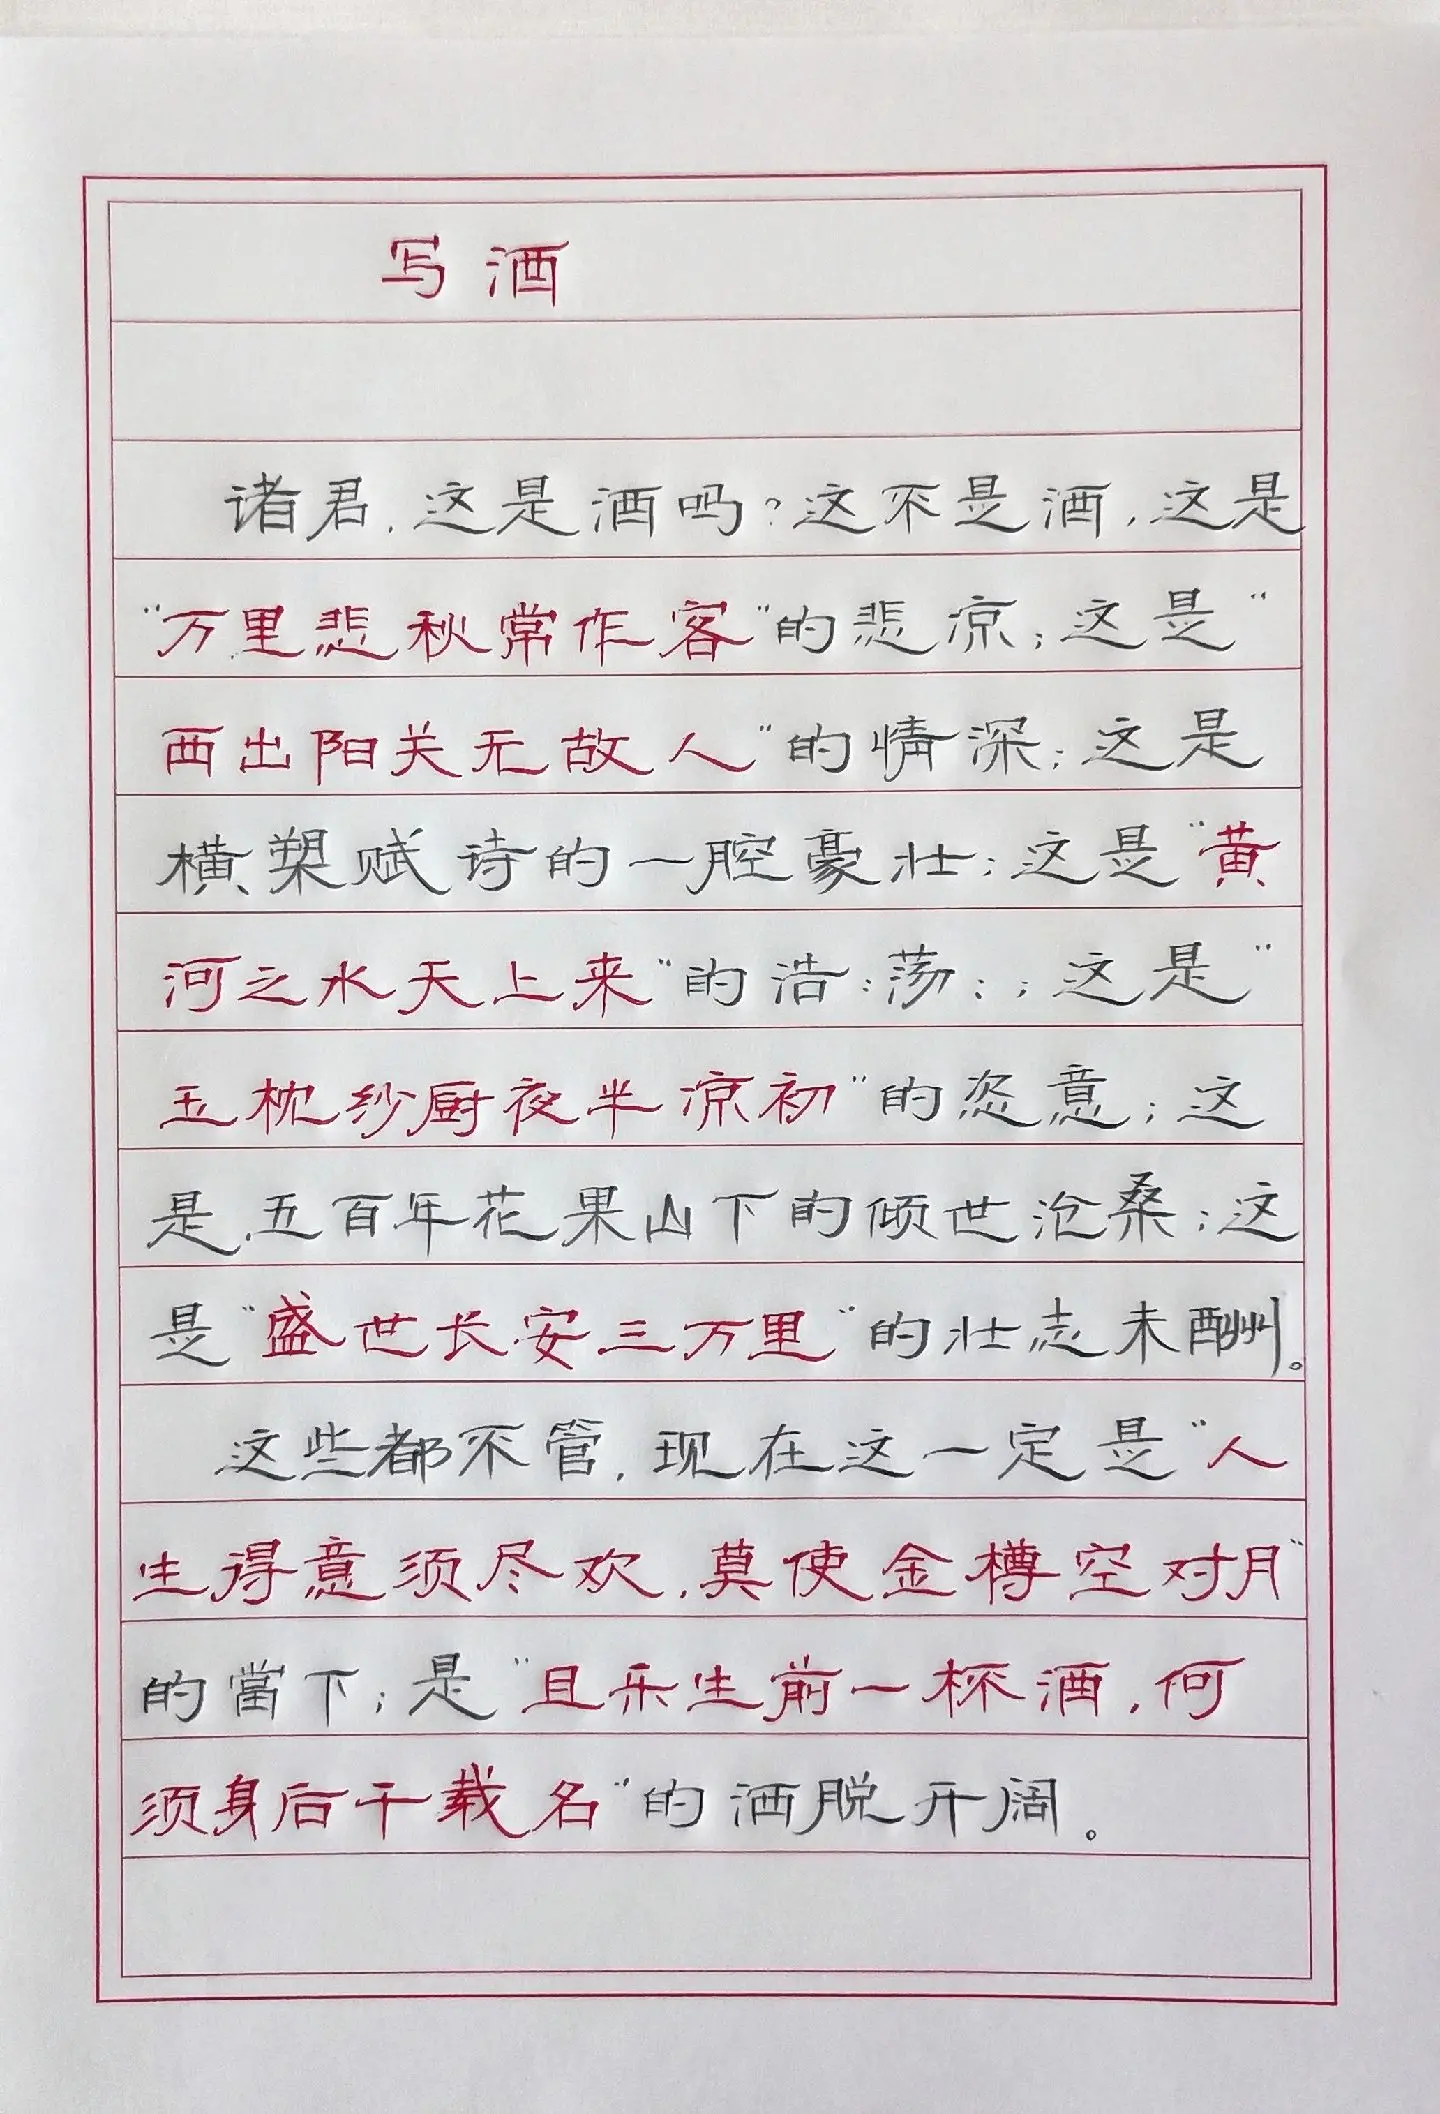 写酒
诸君，这是酒吗？这不是酒，这是
“万里悲秋常作客”的悲凉；这是“
西出阳关无故人”的情深；这是
横槊赋诗的一腔豪壮；这是“黄
河之水天上来”的浩：荡：；这是“
玉枕纱厨夜半凉初”的恣意；这
是，五百年花果山下的倾世沧桑；这
是“盛世长安三万里”的壮志未酬。
这些都不管，现在这一定是“人
生得意须尽欢，莫使金樽空对月”
的當下；是“且乐生前一杯酒，何
须身后千载名”的洒脱开阔。